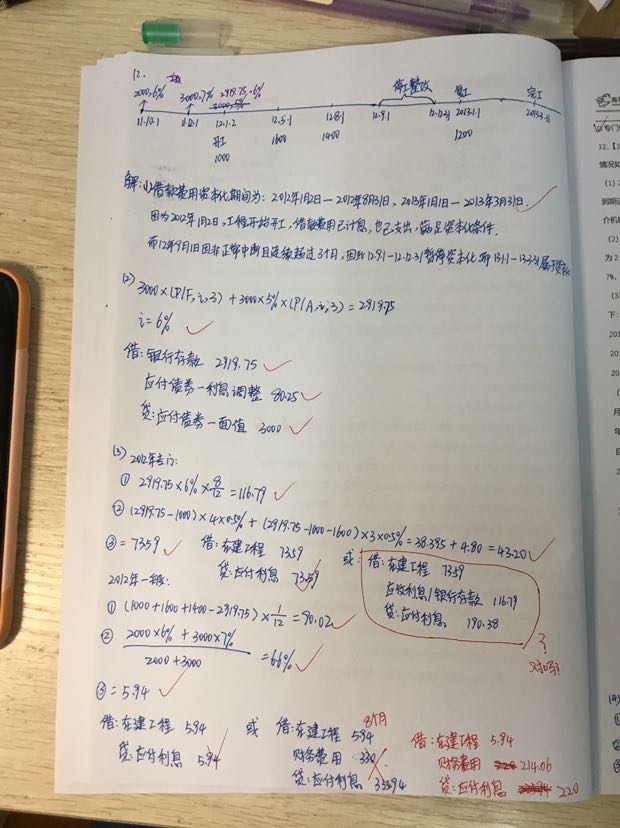 12.
2000,6%
3000,7%
2919.75,6%
3000,5%
停工整改
复工
完工
11.10.1
11.12.1
12.1.2
12.5.1
12.8.1
12.9.1
12.12.31
2013.1.1
2013.3.31
开工
1000
1600
1400
1200
解:(1)借款费用资本化期间为:2012年1月2日—2012年8月31日,2013年1月1日—2013年3月31日.
因为2012年1月2日,工程开始开工,借款费用已计息,也已支出,满足资本化条件.
而12年9月1日因非正常中断且连续超过3个月,因此12.9.1-12.12.31暂停资本化.
(2)
3000×(P/F,i,3)+3000×5%×(P/A,i,3)=2919.75
i=6%
借:银行存款 2919.75
应付债券—利息调整 80.25
贷:应付债券—面值 3000
(3) 2012年专门:
① 2919.75×6%×8/12=116.79
② (2919.75-1000)×4×0.5%+(2919.75-1000-1600)×3×0.5%=38.395+4.80=43.20
③=73.59 借:在建工程 73.59
贷:应付利息 73.59
或: 借:在建工程 73.59
应收利息/银行存款 116.79
贷:应付利息 190.38
?
对吗?
2012年一般:
① (1000+1600+1400-2919.75)×1/12=90.02
② 2000×6%+3000×7%
2000+3000
=6.6%
③=5.94
借:在建工程 5.94
贷:应付利息 5.94
或
8个月
借:在建工程 5.94
财务费用 330
贷:应付利息 335.94
借:在建工程 5.94
财务费用 214.06
贷:应付利息 220
12.【2
情况如
(1)2
到期还
介机构
(2)
为2
7%,
(3)
下:
201
201
201
20
(
月
年
自
2
(4)
①
②